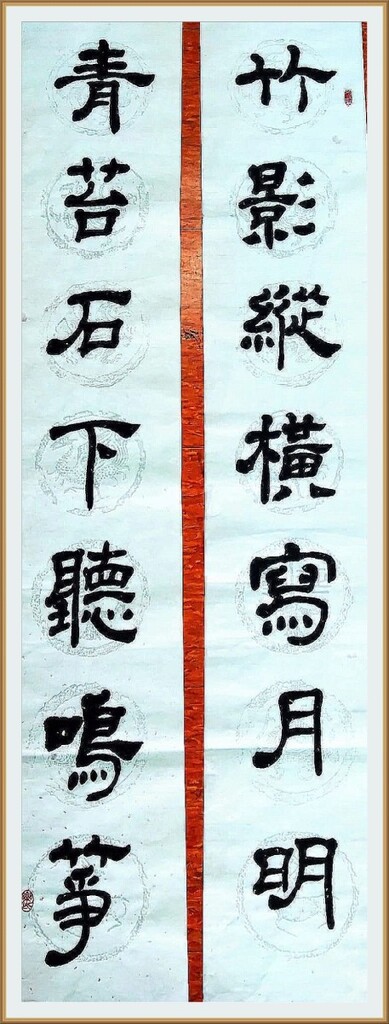 竹影縱橫寫月明
青苔石下聽鳴箏